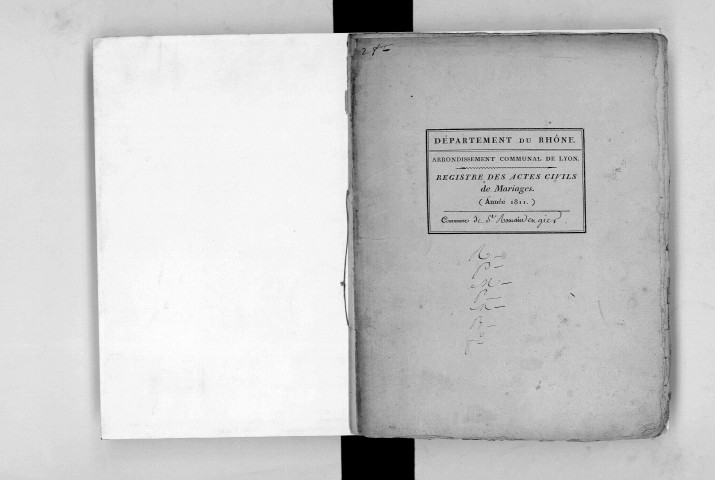 DÉPARTEMENT DU RHÔNE.
ARRONDISSEMENT COMMUNAL DE LYON.
REGISTRE DES ACTES CIVILS
de Mariages.
( Année 1811. )
Commune de St Romain en gier